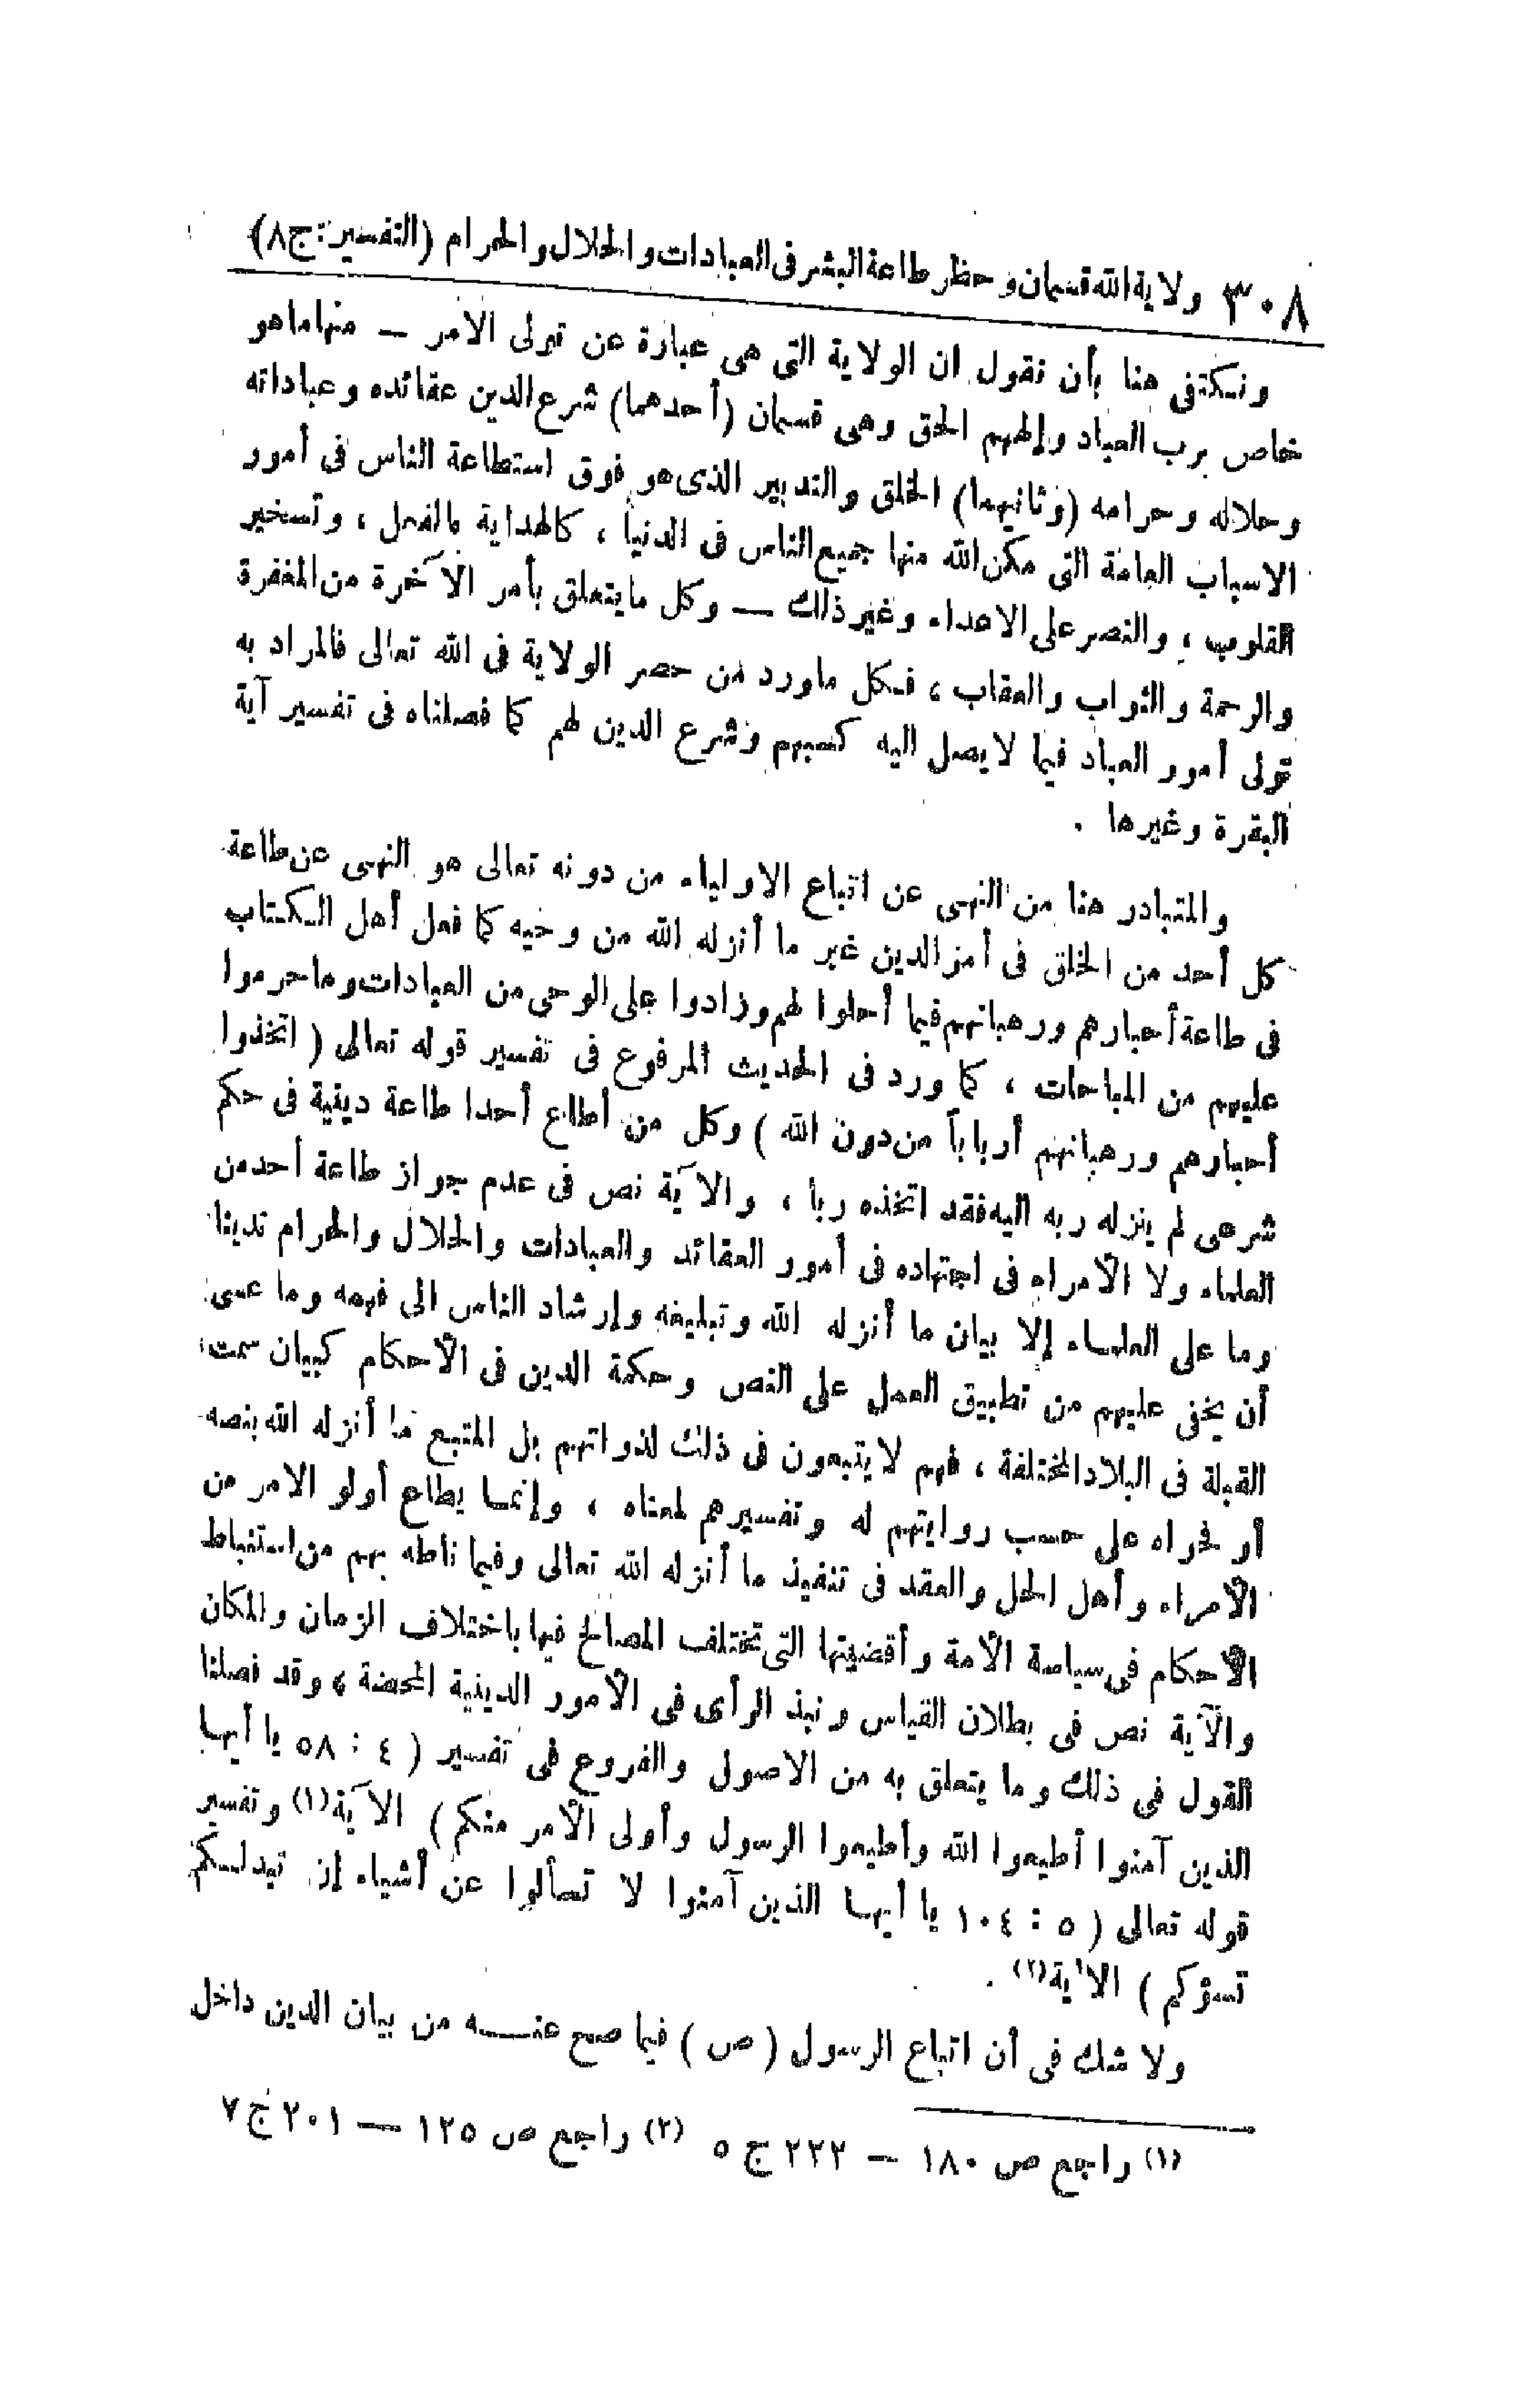 ٣٠٨ ولاية الله قسمان وحظر طاعة البشر في العبادات والحلال والحرام (التفسير: ج٨)
ونكتفي هنا بأن نقول ان الولاية التي هي عبارة عن تولى الأمر – منها ما هو
خاص برب العباد وإلههم الحق وهي قسمان (أحدهما) شرع الدين عقائده وعباداته
وحلاله وحرامه (وثانيهما) الخلق والتدبير الذي هو فوق استطاعة الناس في أمور
الاسباب العامة التي مكن الله منها جميع الناس في الدنيا ، كالهداية بالفعل ، وتسخير
القلوب ، والنصر على الاعداء وغير ذلك — وكل ما يتعلق بأمر الآخرة من المغفرة
والرحمة والثواب والعقاب ، فكل ما ورد من حصر الولاية في الله تعالى فالمراد به
تولى أمور العباد فيما لا يصل اليه كسبهم وشرع الدين لهم كما فصلناه في تفسير آية
البقرة وغيرها .
والمتبادر هنا من النهي عن اتباع الاولياء من دونه تعالى هو النهي عن طاعة
كل أحد من الخلق في أمر الدين غير ما أنزله الله من وحيه كما فعل أهل الكتاب
في طاعة أحبارهم ورهبانهم فيما أحلوا لهم وزادوا على الوحي من العبادات وما حرموا
عليهم من المباحات ، كما ورد في الحديث المرفوع في تفسير قوله تعالى ( اتخذوا
أحبارهم ورهبانهم أرباباً من دون الله ) وكل من أطاع أحدا طاعة دينية في حكم
شرعي لم ينزله ربه اليه فقد اتخذه ربا ، والآية نص في عدم جواز طاعة أحد من
العلماء ولا الأمراء في اجتهاده في أمور العقائد والعبادات والحلال والحرام تدينا
وما على العلماء إلا بيان ما أنزله الله وتبليغه وإرشاد الناس الى فهمه وما عسى
أن يخفى عليهم من تطبيق العمل على النص وحكمة الدين في الأحكام كبيان سمت
القبلة في البلاد المختلفة ، فهم لا يتبعون في ذلك لذواتهم بل المتبع ما أنزله الله بنصه
أو فحواه على حسب روايتهم له وتفسيرهم لمعناه ، وإنما يطاع أولو الامر من
الأمراء وأهل الحل والعقد في تنفيذ ما أنزله الله تعالى وفيما ناطه بهم من استنباط
الأحكام في سياسة الأمة وأقضيتها التي تختلف المصالح فيها باختلاف الزمان والمكان
والآية نص في بطلان القياس ونبذ الرأي في الأمور الدينية المحضة ، وقد فصلنا
القول في ذلك وما يتعلق به من الاصول والفروع في تفسير ( ٤ : ٥٨ يا أيها
الذين آمنوا أطيعوا الله وأطيعوا الرسول وأولى الأمر منكم ) الآية(١) وتفسير
قوله تعالى ( ٥ : ١٠٤ يا أيها الذين آمنوا لا تسألوا عن أشياء إن تبد لكم
تسؤكم ) الآية(٢) .
ولا شك في أن اتباع الرسول ( ص ) فيما صح عنه من بيان الدين داخل
(١) راجع ص ١٨٠ – ٢٢٢ ج ٥ (٢) راجع ص ١٢٥ — ٢٠١ ج ٧